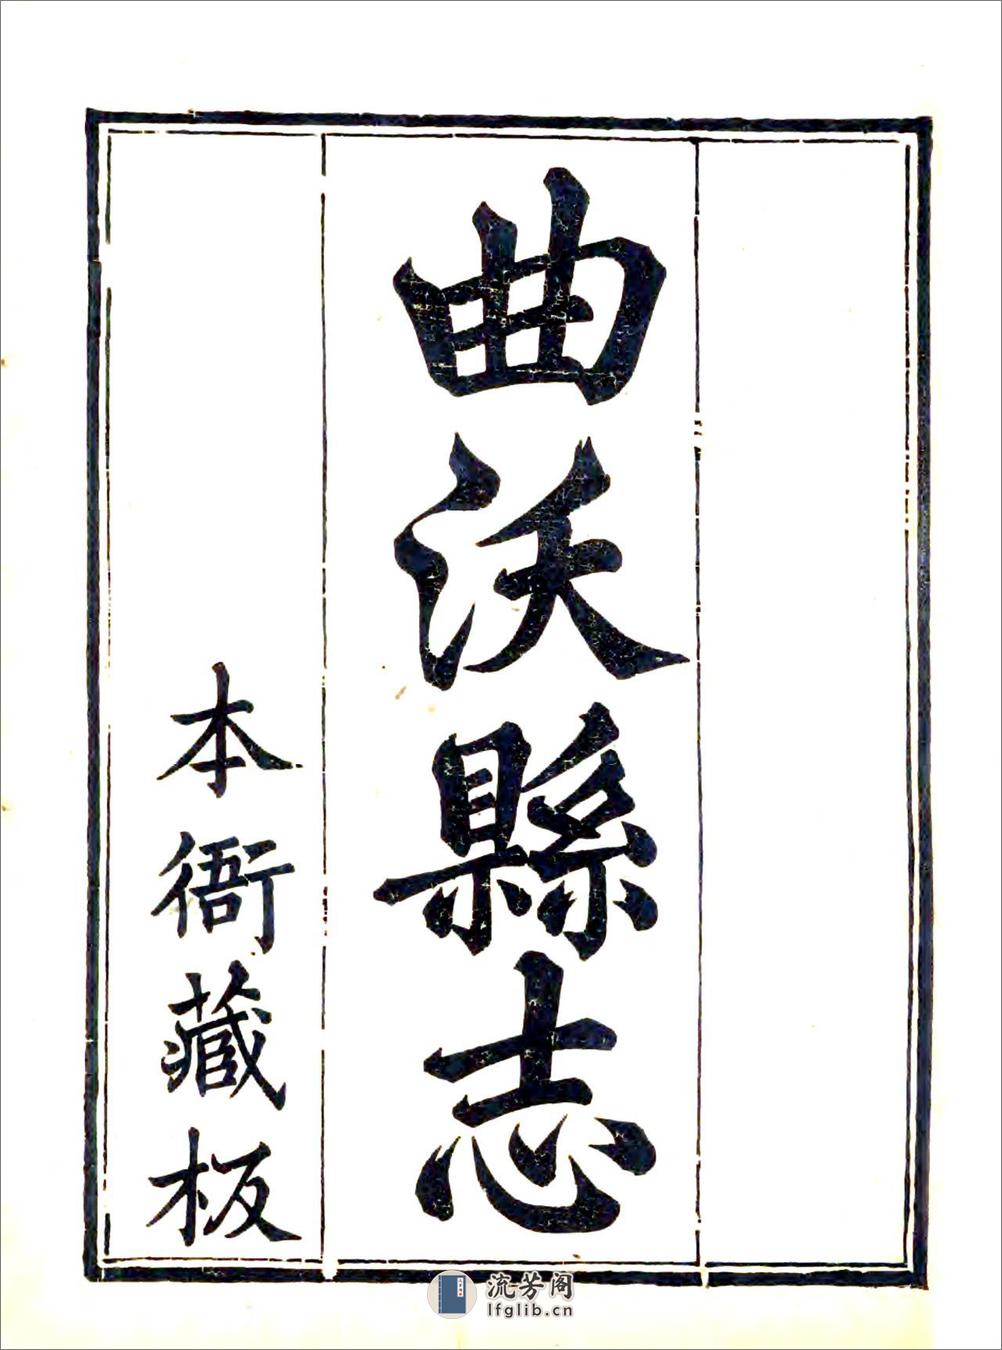 曲沃縣志
本衙藏板
流芳阁
lfglib.cn